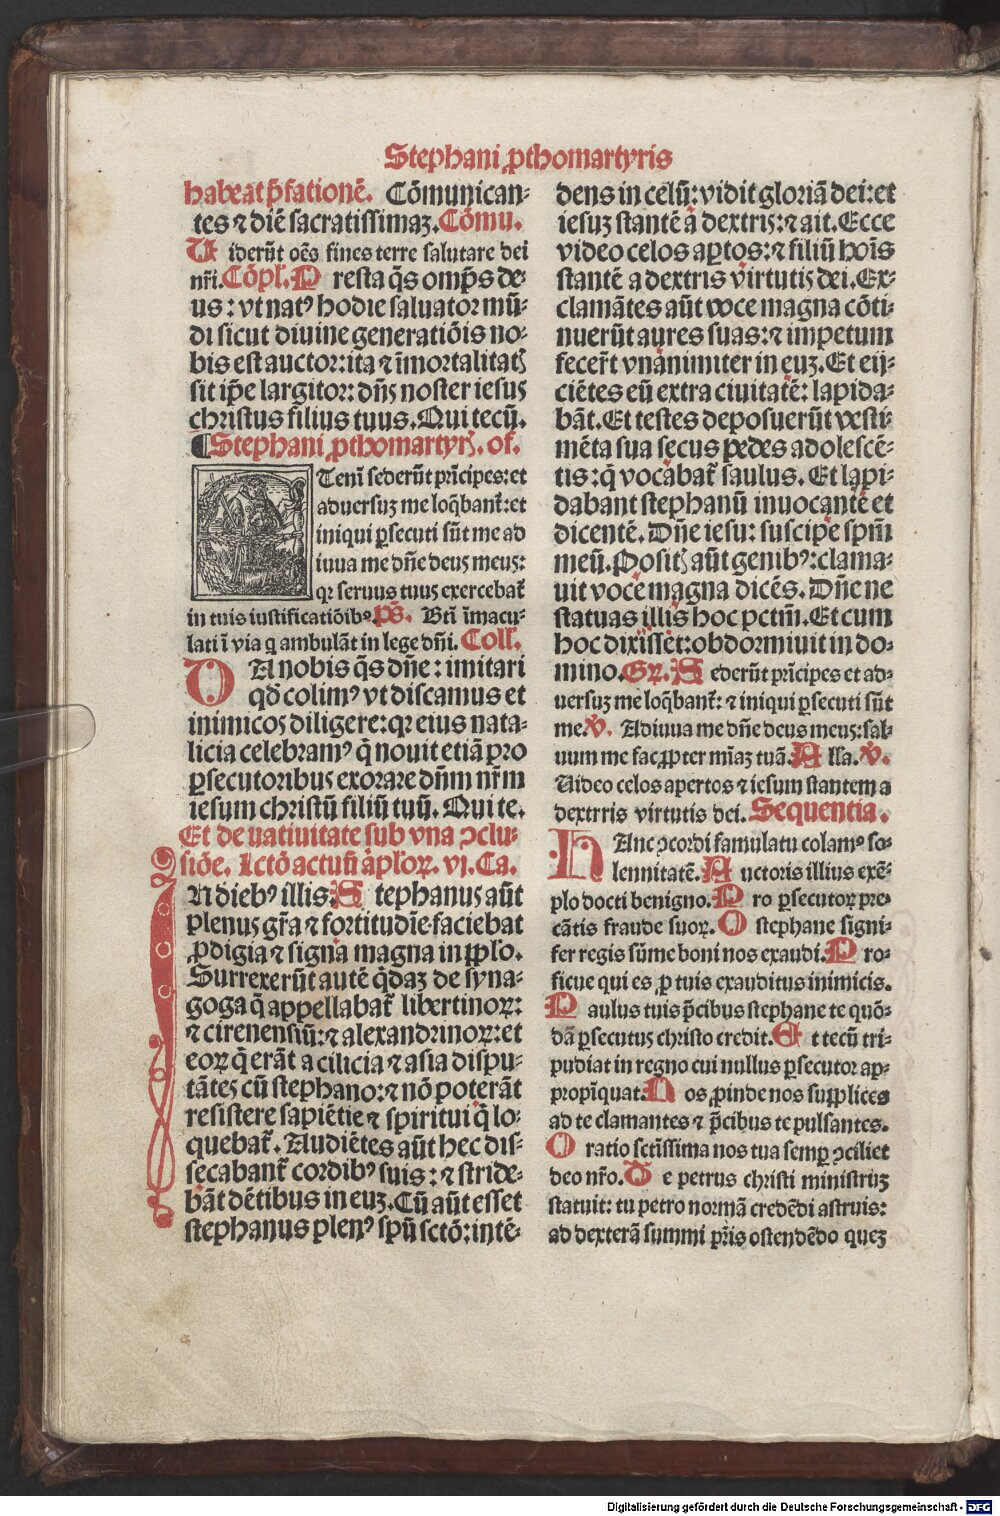 Stephani ꝓthomartyris
habeat p̄fationē. Cōmunican⸗
tes ⁊ diē sacratissimaꝫ. Cōmu.
Uiderūt oēs fines terre salutare dei
nr̄i. Cōpl. Presta q̄s omp̄s de⸗
us: vt natꝰ hodie saluator mū⸗
di sicut diuine generatiōis no⸗
bis est auctor: ita ⁊ īmortalitatꝭ
sit ip̄e largitor: dn̄s noster iesus
christus filius tuus. Qui tecū.
¶Stephani ꝓthomartyrꝭ. of.
ETeni sederūt prīcipes: et
aduersuꝫ me loq̄bant᷑: et
iniqui ꝑsecuti sūt me ad
iuua me dn̄e deus meus:
qꝛ seruus tuus exercebat᷑
in tuis iustificatiōibꝰ. ps̄. Bti īmacu⸗
lati ī via q̄ ambulāt in lege dn̄i. Coll.
DA nobis q̄s dn̄e: imitari
qd̄ colimꝰ vt discamus et
inimicos diligere: qꝛ eius nata⸗
licia celebramꝰ q̄ nouit etiā pro
ꝑsecutoribus exorare dn̄m nr̄m
iesum christū filiū tuū. Qui te.
Et de natiuitate sub vna ꝯclu⸗
siōe. Lctō actuū apl'oꝝ. vj. Ca.
IN diebꝰ illis: Stephanus aūt
plenus gr̄a ⁊ fortitudīe faciebat
ꝓdigia ⁊ signa magna in pplo.
Surrexerūt autē q̄daꝫ de syna⸗
goga q̄ appellabat᷑ libertinoꝝ:
⁊ cirenensiū: ⁊ alexandrinoꝝ: et
eoꝝ q̄ erāt a cilicia ⁊ asia dispu⸗
tātes cū stephano: ⁊ nō poterāt
resistere sapiētie ⁊ spiritui q̄ lo⸗
quebat᷑. Audiētes aūt hec dis⸗
secabant᷑ cordibꝰ suis: ⁊ stride⸗
bāt dētibus in euꝫ. Cū aūt esset
stephanus plenꝰ spū sctō: intē⸗
dens in celū: vidit gloriā dei: et
iesuꝫ stantē a dextris: ⁊ ait. Ecce
video celos aꝑtos: ⁊ filiū hoīs
stantē a dextris virtutis dei. Ex⸗
clamātes aūt voce magna cōti⸗
nuerūt aures suas: ⁊ impetum
fecer̄t vnanimiter in euꝫ. Et eij⸗
ciētes eū extra ciuitatē: lapida⸗
bāt. Et testes deposuerūt vesti⸗
mēta sua secus pedes adolescē⸗
tis: q̄ vocabat᷑ saulus. Et lapi⸗
dabant stephanū inuocantē et
dicentē. Dn̄e iesu: suscipe spm̄
meū. Positꝭ aūt genibꝰ: clama⸗
uit voce magna dicēs. Dn̄e ne
statuas illis hoc pctm̄. Et cum
hoc dixisset: obdormiuit in do⸗
mino. Gꝛ. Sederūt prīcipes et ad⸗
uersuꝫ me loq̄bant᷑: ⁊ iniqui ꝑsecuti sūt
me. ℣. Adiuua me dn̄e deus meus: sal⸗
uum me fac ꝓpter mīaꝫ tuā. Alla. ℣.
Uideo celos apertos ⁊ iesum stantem a
dextrris virtutis dei. Sequentia.
HAnc ꝯcordi famulatu colamꝰ so⸗
lennitatē. Auctoris illius exē⸗
plo docti benigno. Pro ꝑsecutoꝝ pre⸗
cātis fraude suoꝝ. O stephane signi⸗
fer regis sūme boni nos exaudi. Pro⸗
ficue qui es ꝓ tuis exauditus inimicis.
Paulus tuis p̄cibus stephane te quō⸗
dā ꝑsecutus christo credit. Et tecū tri⸗
pudiat in regno cui nullus ꝑsecutor ap⸗
propīquat. Nos ꝓinde nos supplices
ad te clamantes ⁊ p̄cibus te pulsantes.
Oratio sctīssima nos tua semꝑ ꝯciliet
deo nr̄o. Te petrus christi ministrūꝫ
statuit: tu petro normā credēdi astruis:
ad dexterā summi pr̄is ostendēdo queꝫ
Digitalisierung gefördert durch die Deutsche Forschungsgemeinschaft - DFG